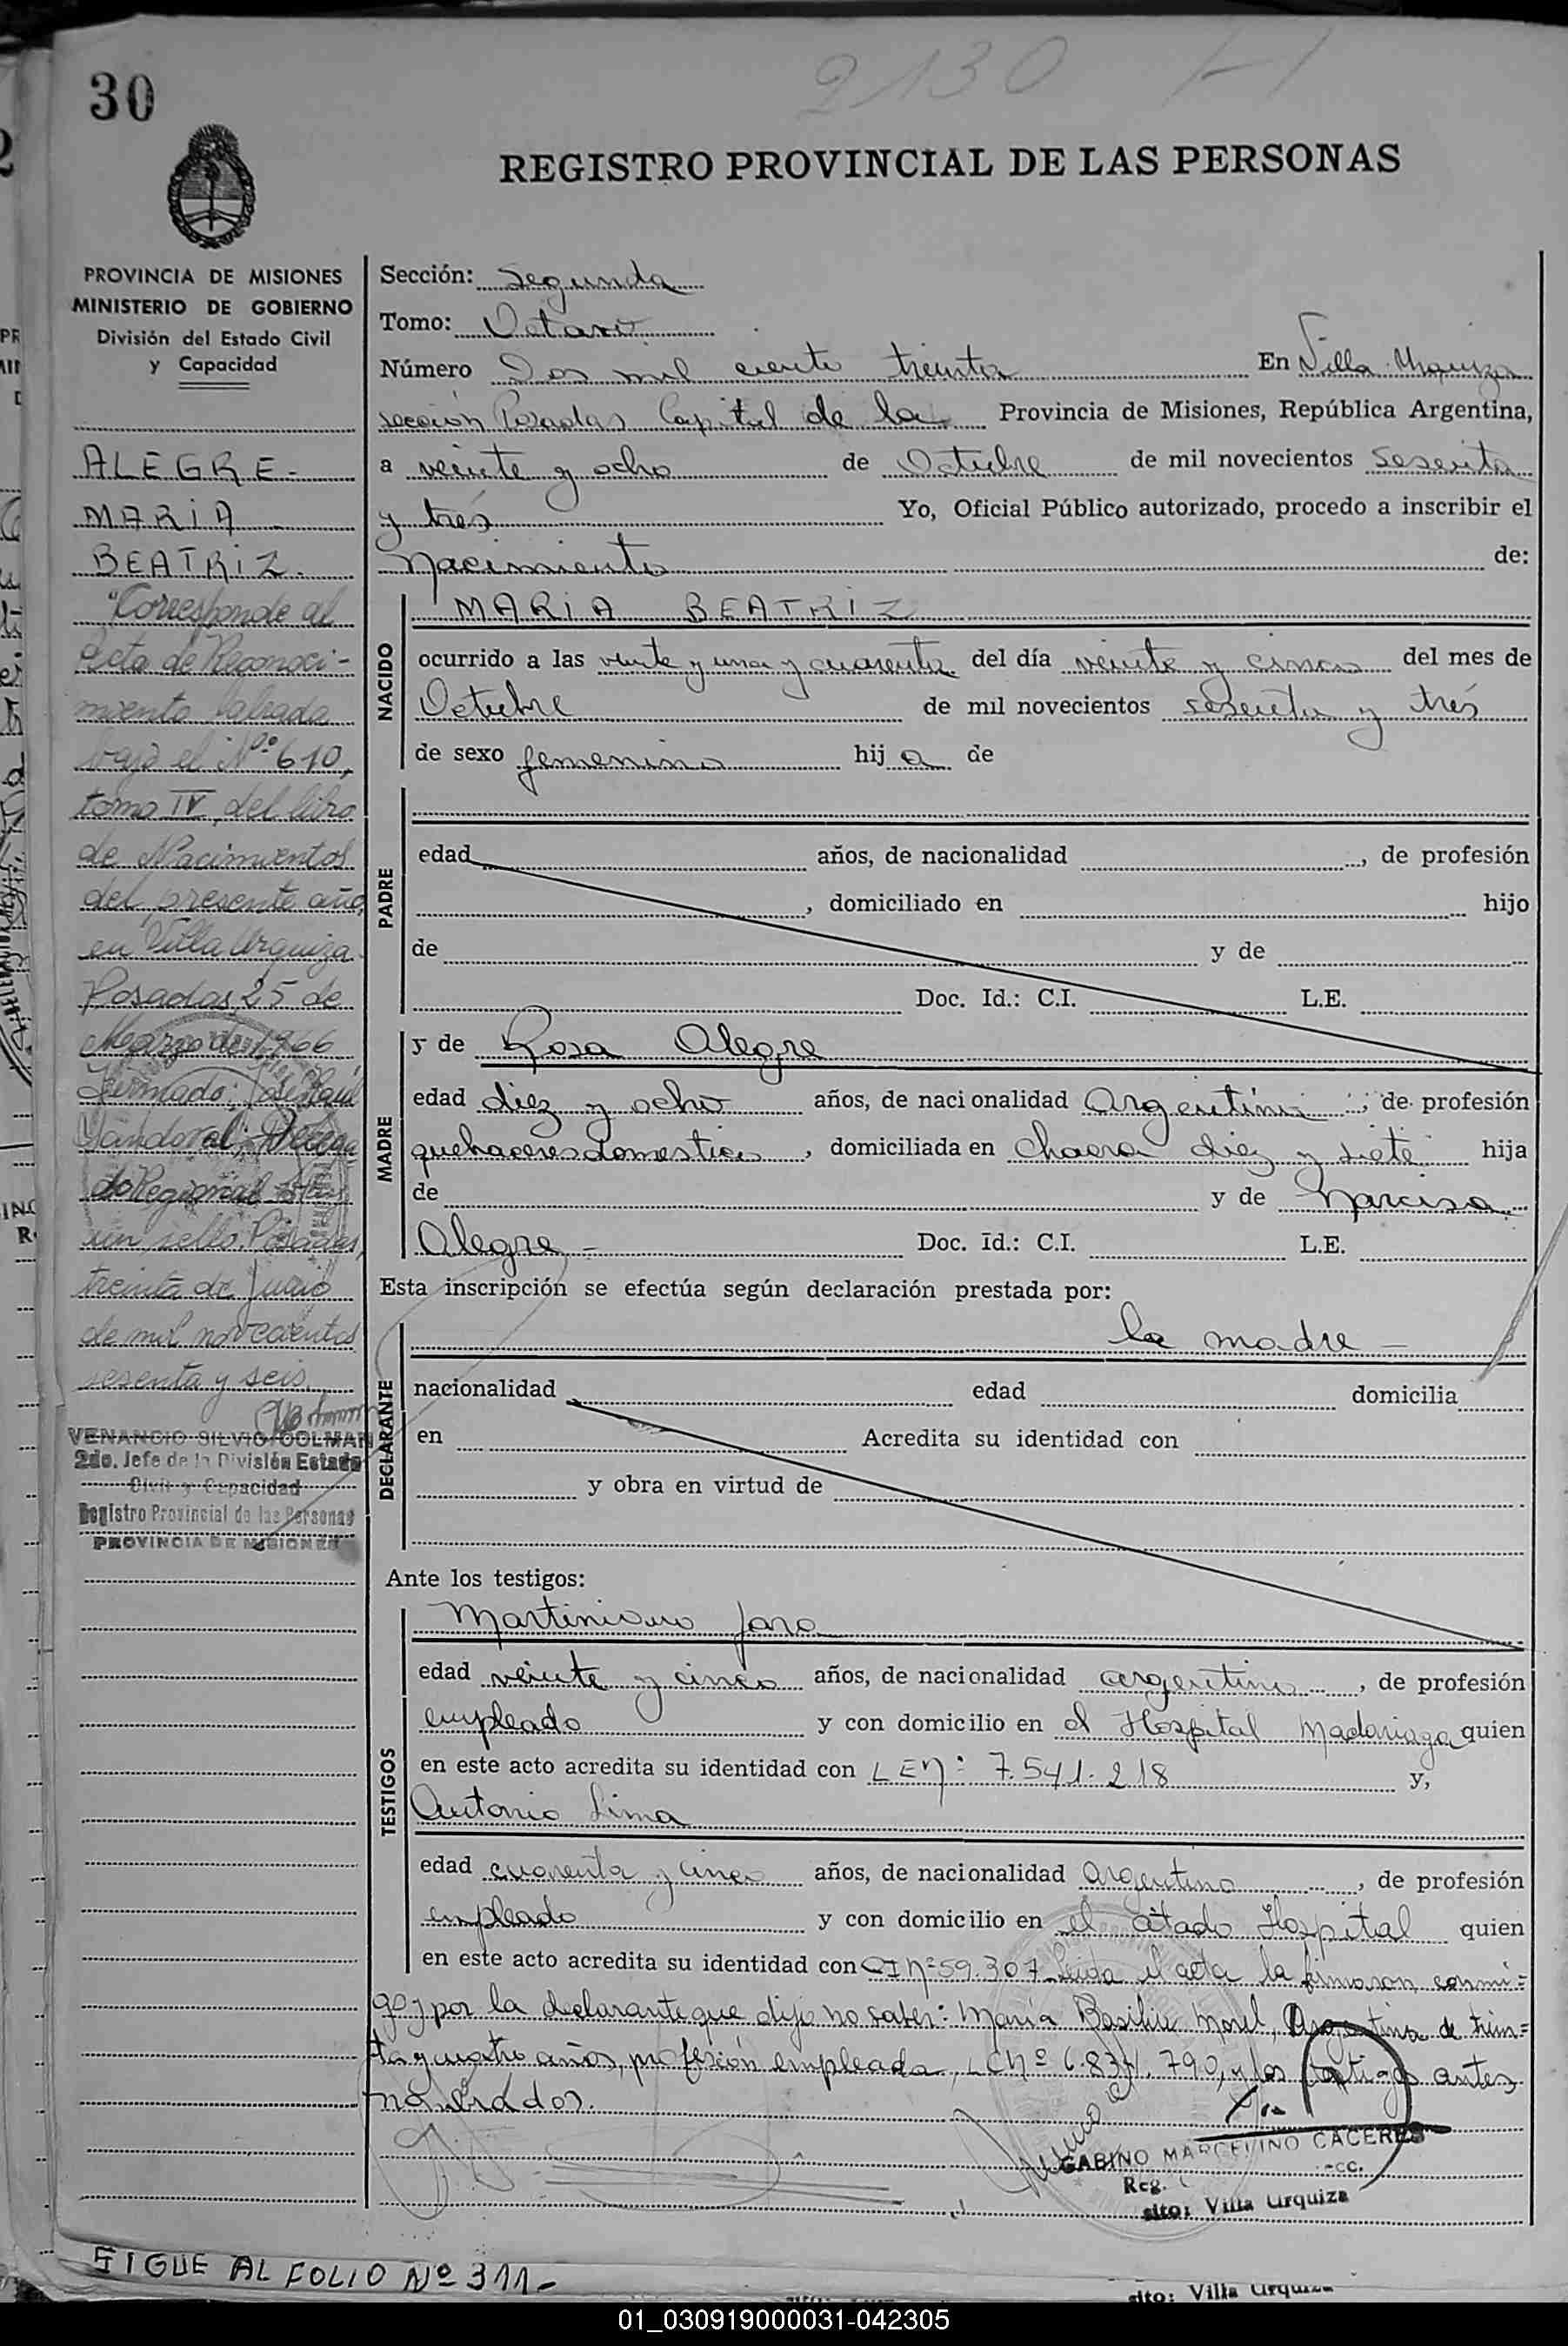 30
2130
REGISTRO PROVINCIAL DE LAS PERSONAS
PROVINCIA DE MISIONES
MINISTERIO DE GOBIERNO
División del Estado Civil
y Capacidad
ALEGRE.-
MARIA
BEATRIZ.
"Corresponde al
Acta de Reconoci-
miento labrada
bajo el Nº 610,
tomo IV, del libro
de Nacimientos
del presente año,
en Villa Urquiza.
Posadas, 25 de
Marzo de 1966
Firmado: José Raúl
Sandoval; Delega-
do Regional
un sello. Posadas,
treinta de junio
de mil novecientos
sesenta y seis.
VENANCIO SILVIO COLMAN
2do. Jefe de la División Estado
Civil y Capacidad
Registro Provincial de las Personas
PROVINCIA DE MISIONES
Sección: Segunda
Tomo: Octavo
Número Dos mil ciento treinta En Villa Urquiza
sección Posadas Capital de la Provincia de Misiones, República Argentina,
a veinte y ocho de Octubre de mil novecientos sesenta
y trés Yo, Oficial Público autorizado, procedo a inscribir el
Nacimiento de:
NACIDO
MARIA BEATRIZ
ocurrido a las veinte y una y cuarenta del día veinte y cinco del mes de
Octubre de mil novecientos sesenta y trés
de sexo femenino hij a de
PADRE
edad años, de nacionalidad , de profesión
, domiciliado en hijo
de y de
Doc. Id.: C.I. L.E.
MADRE
y de Rosa Alegre
edad diez y ocho años, de nacionalidad Argentina, de profesión
quehaceres domesticos, domiciliada en chacra diez y siete hija
de y de Narcisa
Alegre - Doc. Id.: C.I. L.E.
Esta inscripción se efectúa según declaración prestada por:
DECLARANTE
la madre -
nacionalidad edad domicilia
en Acredita su identidad con
y obra en virtud de
Ante los testigos:
TESTIGOS
Martiniano Jara
edad veinte y cinco años, de nacionalidad argentino, de profesión
empleado y con domicilio en el Hospital Madariaga quien
en este acto acredita su identidad con LEN: 7.541.218 y,
Antonio Lima
edad cuarenta y cinco años, de nacionalidad Argentino, de profesión
empleado y con domicilio en el citado Hospital quien
en este acto acredita su identidad con CI Nº 59.307 Leida el acta la firmaron conmi=
go y por la declarante que dijo no saber: María Basilia Morel, Argentina de trein=
ta y cuatro años, profesión empleada, LC Nº 6.831.790, y los testigos antes
nombrados.
GABINO MARCELINO CACERES
Reg.
sito: Villa Urquiza
SIGUE AL FOLIO Nº 311-
sito: Villa Urquiza
01_030919000031-042305